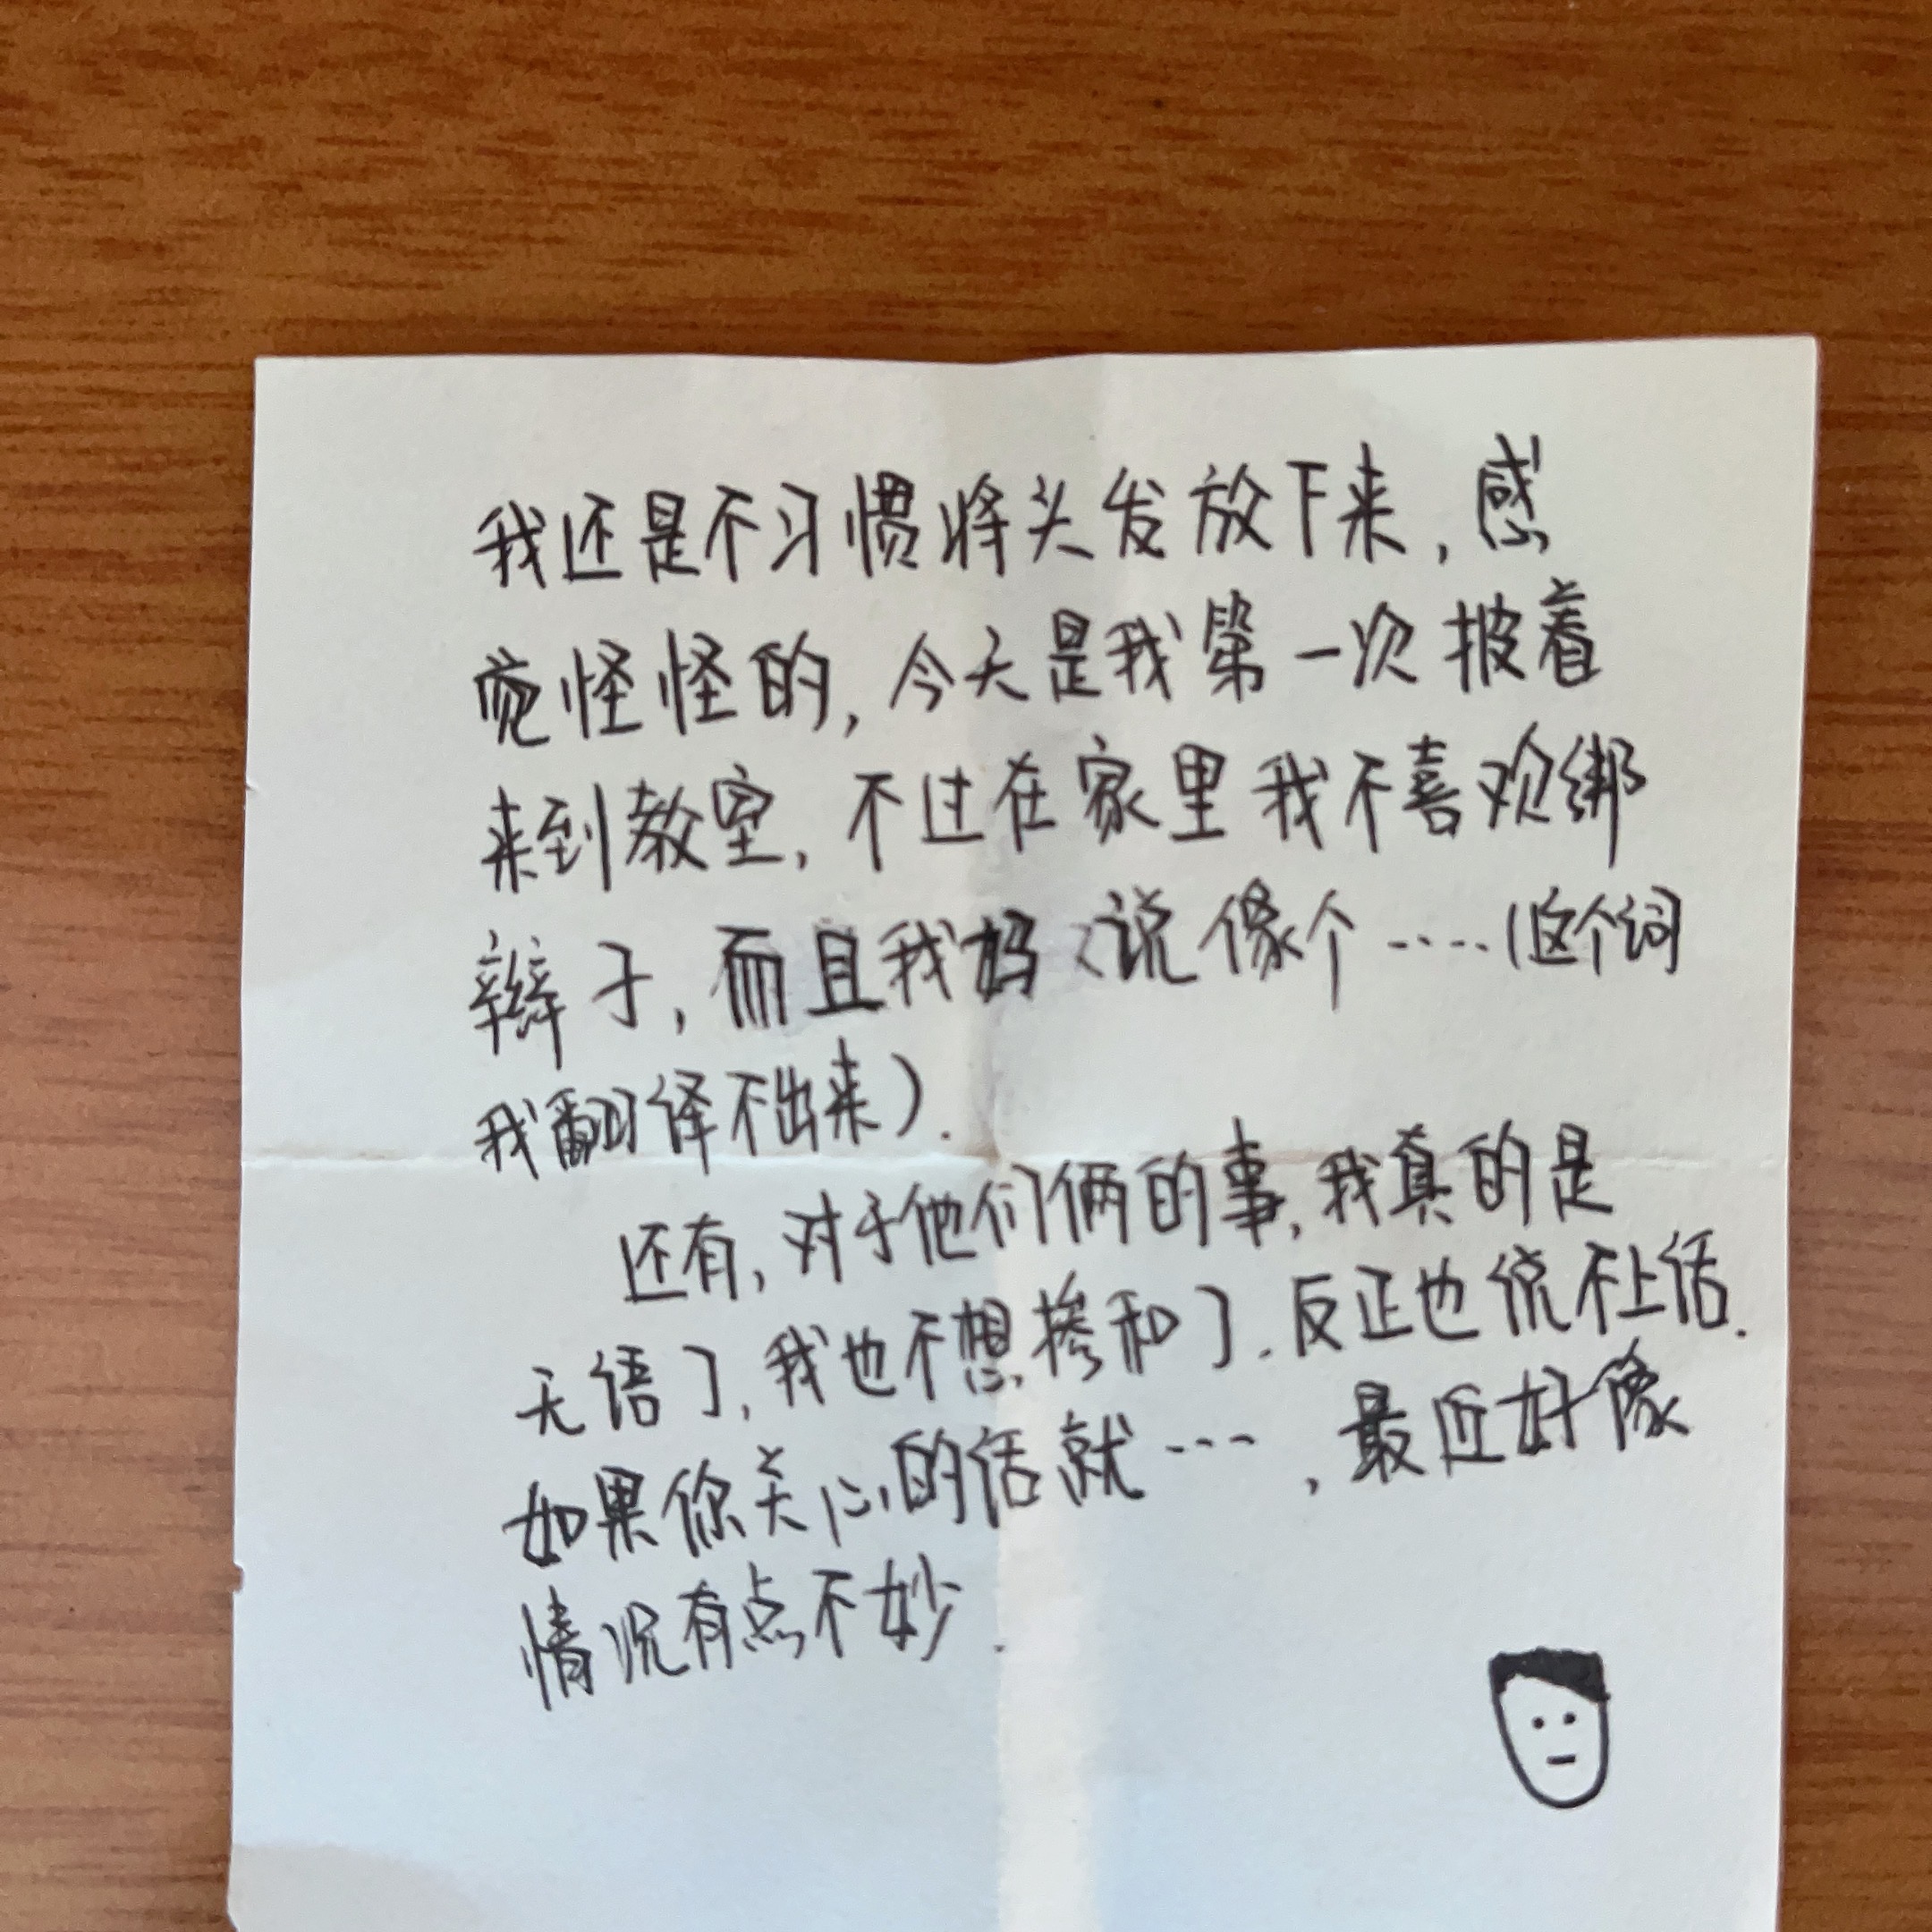 我还是不习惯将头发放下来，感
觉怪怪的，今天是我第一次披着
来到教室，不过在家里我不喜欢绑
辫子，而且我妈又说像个……（这个词
我翻译不出来）.
还有，对于他们俩的事，我真的是
无语了，我也不想掺和了.反正也说不上话.
如果你关心的话就…，最近好像
情况有点不妙.